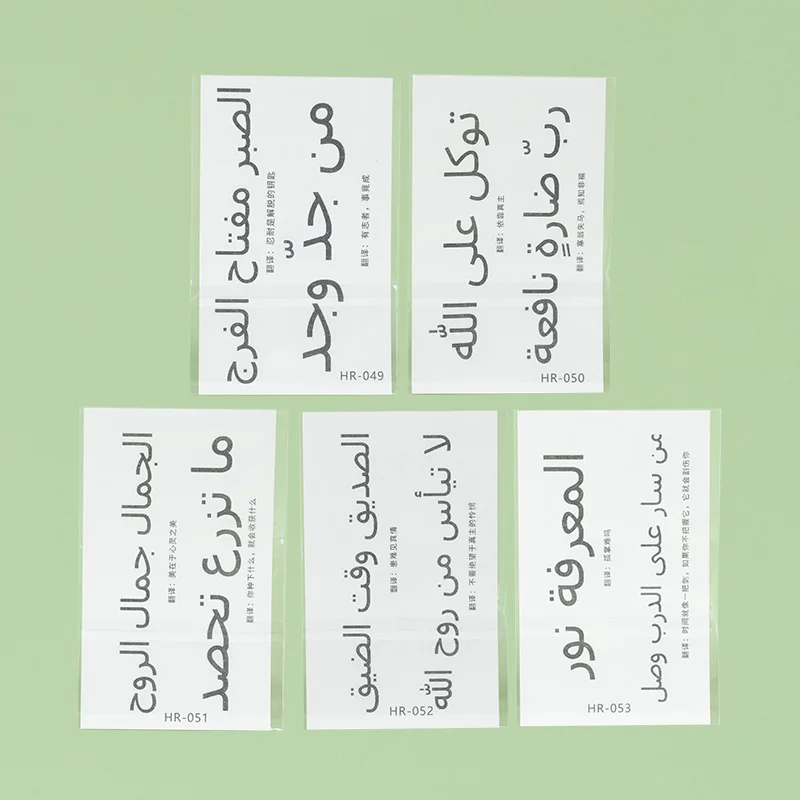 الصبر مفتاح الفرج
翻译：忍耐是解脱的钥匙
من جدّ وجد
翻译：有志者，事竟成
HR-049
توكل على الله
翻译：依靠真主
ربّ ضارةٍ نافعة
翻译：塞翁失马，焉知非福
HR-050
الجمال جمال الروح
翻译：美在于心灵之美
ما تزرع تحصد
翻译：你种下什么，就会收获什么
HR-051
الصديق وقت الضيق
翻译：患难见真情
لا تيأس من روح الله
翻译：不要绝望于真主的怜悯
HR-052
المعرفة نور
翻译：孤掌难鸣
من سار على الدرب وصل
翻译：时间就像一把剑，如果你不把握它，它就会割伤你
HR-053